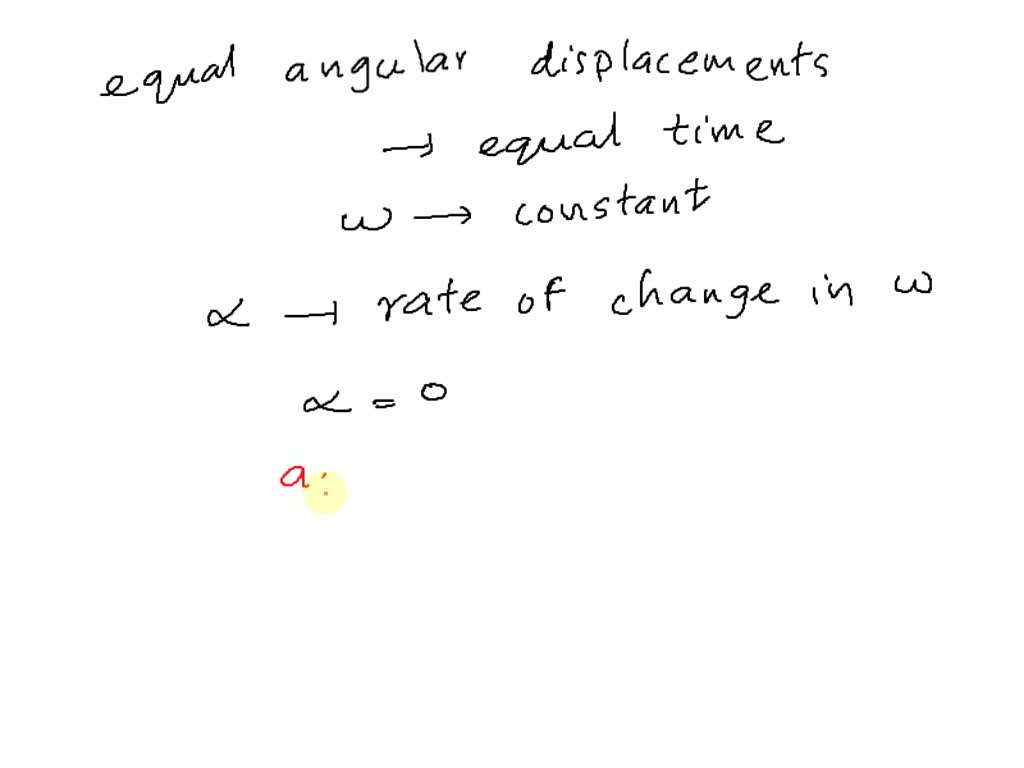 equal angular displacements
→ equal time
ω → constant
α → rate of change in ω
α = 0
a: